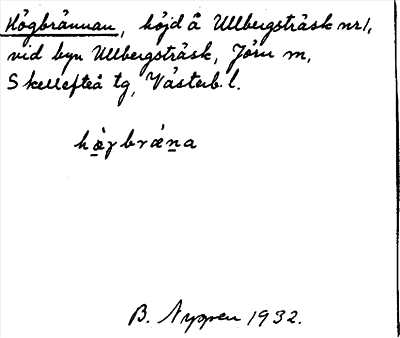 Högbrännan, höjd å Ullbergsträsk nr 1,
vid byn Ullbergsträsk, Jörn sn,
Skellefteå tg, Västerb. l.
hæ̀gbrǽna
B. Nyppen 1932.